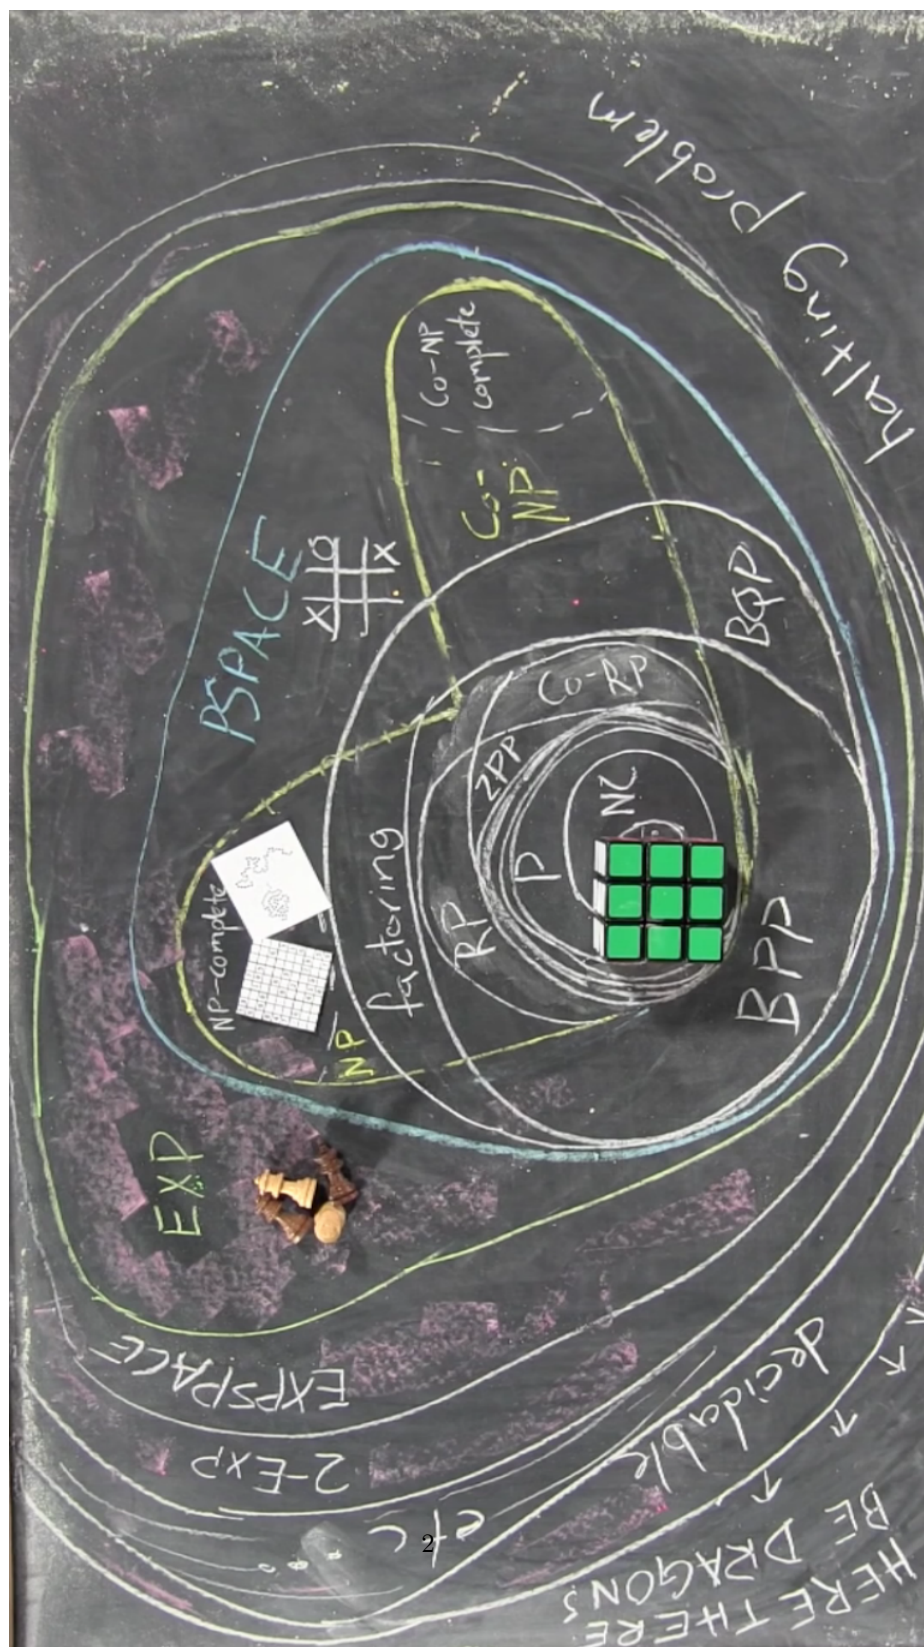 halting problem
Co-NP
complete
Co-
NP
PSPACE
O
X
X
BQP
Co-RP
ZPP
NC
P
RP
factoring
BPP
NP-complete
NP
EXP
EXPSPACE
2-EXP
etc
decidable
HERE THERE
BE DRAGONS
2